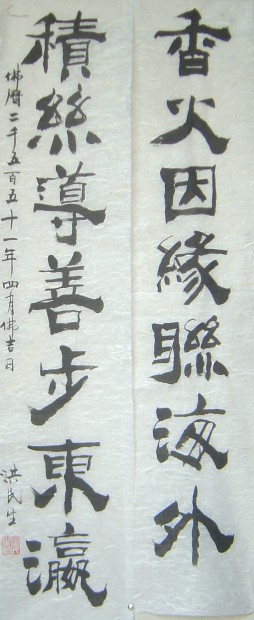 香火因緣聯海外
積絲導善步東瀛
佛曆二千五百五十一年四月佛吉日
洪民生